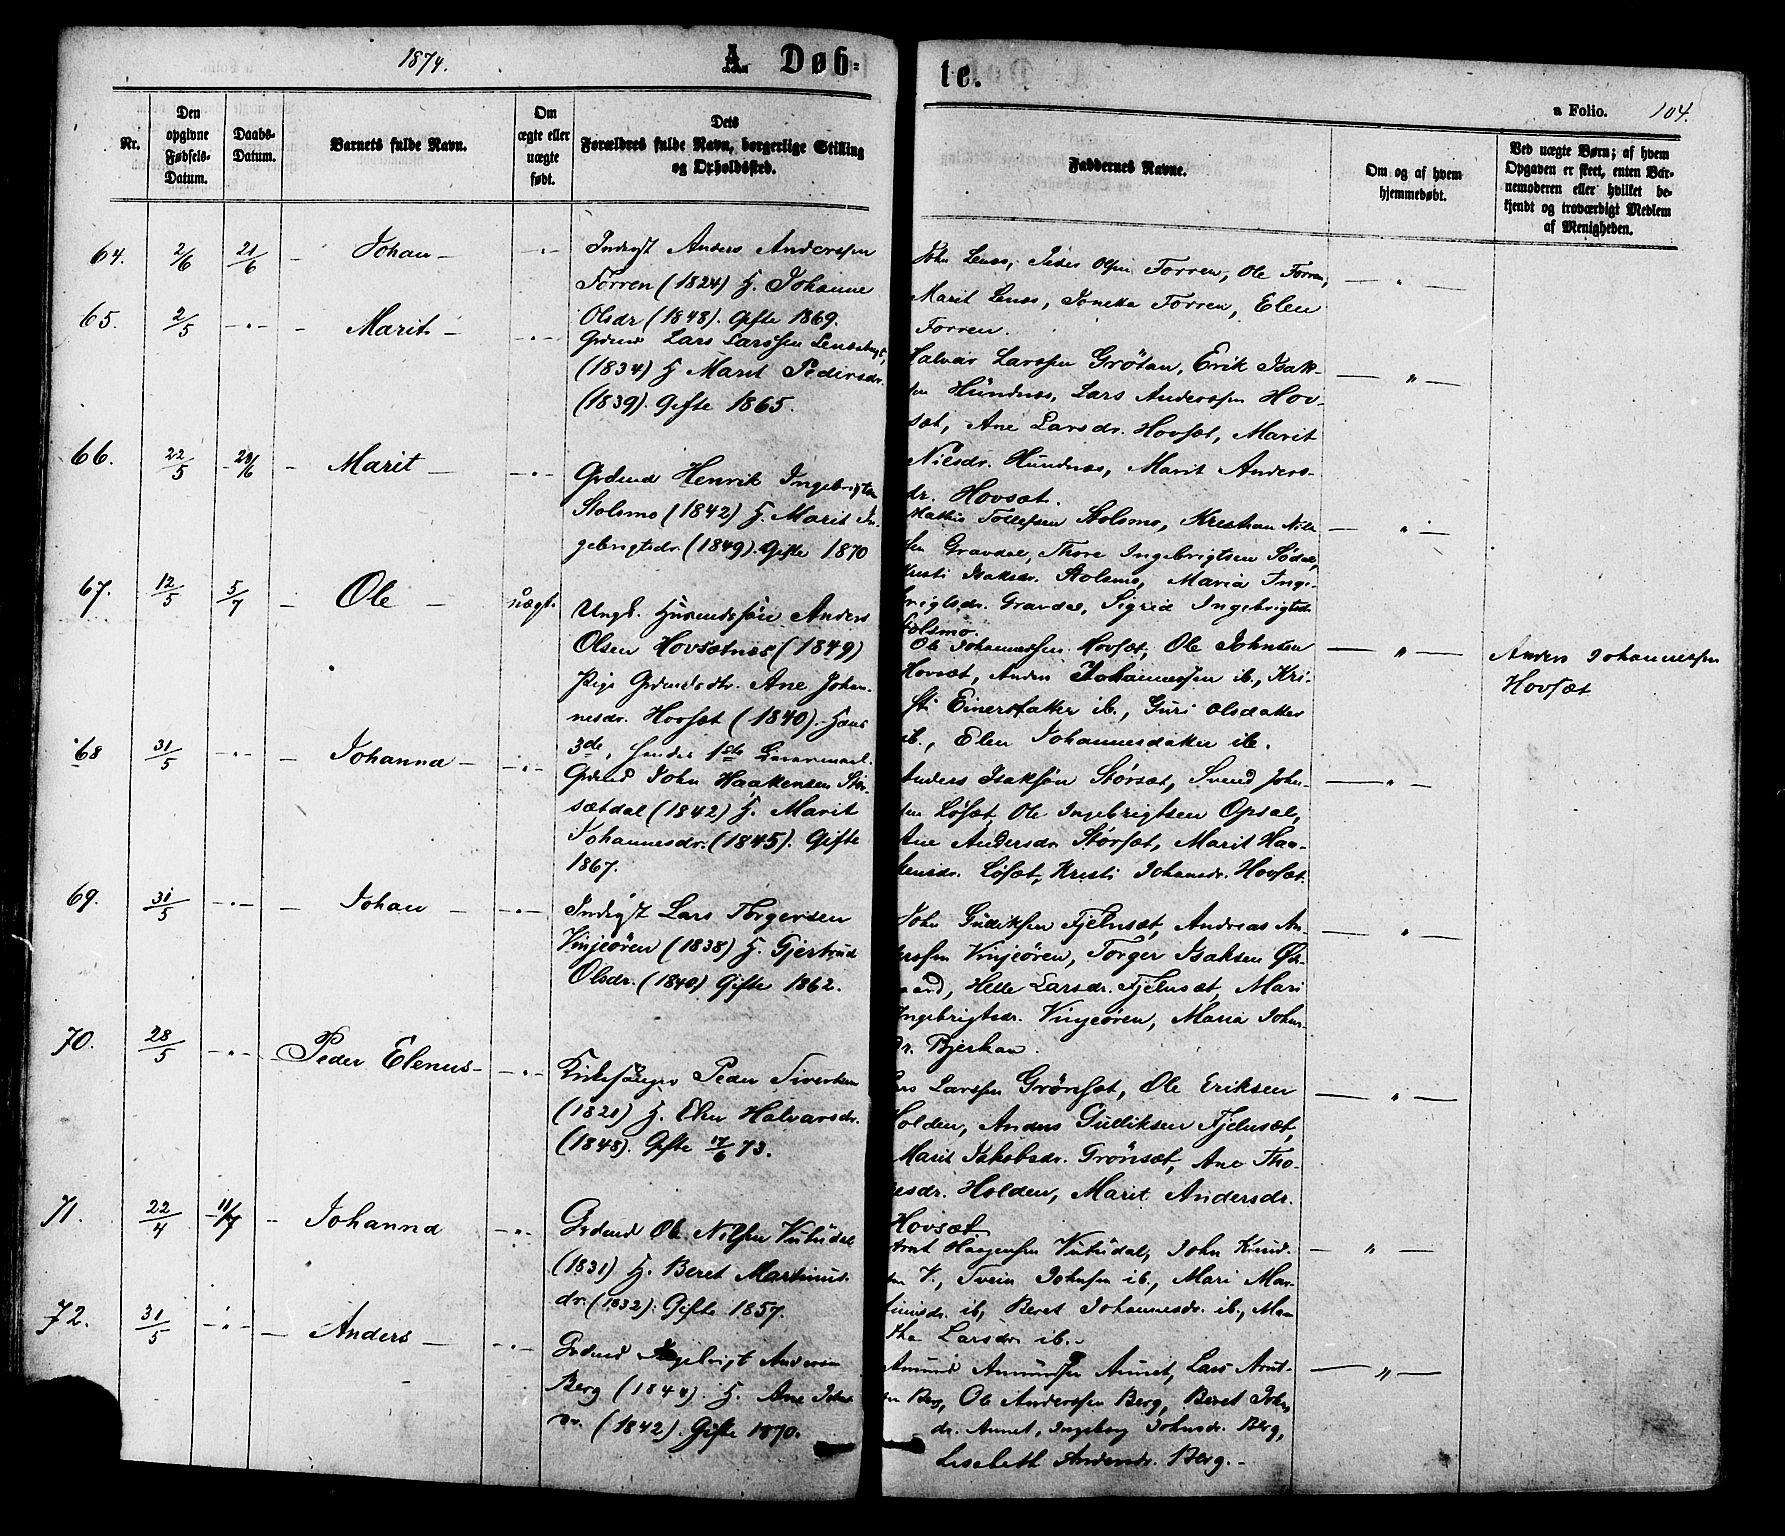 1874.
A. Døb-
te.
a Folio. 104.
Nr.
Den opgivne Fødsels-Datum.
Daabs-Datum.
Barnets fulde Navn.
Om ægte eller uægte født.
Dets Forældres fulde Navn, borgerlige Stilling og Opholdssted.
Faddernes Navne.
Om og af hvem hjemmedøbt.
Ved uægte Børn; af hvem Opgaven er skeet, enten Bar-nemoderen eller hvilket be-kjendt og troværdigt Medlem af Menigheden.
64. 2/6 21/6 - Johan - "
Indrgst Anders Anderssen
Torren (1824) H. Johanne
Olsdr (1848). Gifte 1869.
John Lenes, Peder Olsen Torren, Ole Torren,
Marit Lenes, Jonetta Torren, Elen
Torren.
— " —
65. 2/5 - " - Marit - "
Grdmd Lars Larssen
(1834) H Marit Pedersdr.
(1839). Gifte 1865.
Halvar Larssen Grötan, Erik Isak-
sen Hundnes, Lars Anderssen Hov-
sæt, Ane Larsdr. Hovsæt, Marit
Nilsdr. Hundnæs, Marit Anders-
dr. Hovsæt.
— " —
66. 22/5 - Marit - "
Grdmd Henrik Ingebrigtsen
Stolsmo (1842) H. Marit In-
gebrigtsdr. (1849). Gifte 1870
Mathis Tollefsen Stolsmo, Kristian Nils-
sen Gravdal, Thore Ingebrigtsen Södal,
Kristi Isaksdr. Stolsmo, Maria Inge-
brigtsdr. Gravdal, Sigrid Ingebrigtsd.
Stolsmo.
— " —
67. 12/5 5/7 - Ole - uægt.
Ungk. Husmdssön Anders
Olsen Hovsætnes (1849)
Pige Grdmdsdtr. Ane Johan-
nesdr. Hovsæt (1840). Hans
3de, hendes 1ste Leiermaal.
Ole Johannessen Hovsæt, Ole Johnsen
Hovsæt, Anders Johannessen ib., Kri-
sti Einersdatter ib., Guri Olsdatter
ib., Elen Johannesdatter ib.
— " —
Anders Johannessen
Hovsæt
68 31/5 - " - Johanna - "
Grdmd John Haakensen Stor-
sætdal (1842) H. Marit
Johannesdr. (1845). Gifte
1867.
Anders Isaksön Störsæt, Svend John-
sen Løsæt, Ole Ingebrigtsen Opsal,
Ane Andersdr Störsæt, Marit Haa-
kensdr. Løsæt, Kristi Johansdr. Hovsæt.
— " —
69. 31/5 - " - Johan - "
Indrgst Lars Torgersen
Vinjeören (1838) H. Gjertrud
Olsdr. (1840) Gifte 1862.
John Gulliksen Fjelnsæt, Andreas An-
derssen Vinjeören, Torger Isaksen Øs-
gaard, Helle Larsdr. Fjelnsæt, Mari
Ingebrigtsdr. Vinjeören, Maria Johns-
dr. Bjerkan.
— " —
70. 28/5 - " - Peder Elenus - "
Kirkesanger Peder Sivertsen
(1821) H. Elen Halvarsdr.
(1848). Gifte 17/6 73.
Lars Larssen Grönsæt, Ole Eriksen
Holden, Anders Gulliksen Fjelnsæt,
Marit Jakobsdr. Grönsæt, Ane Tho-
resdr. Holden, Marit Andersdr.
Hovsæt
— " —
71. 22/4 11/7 - Johanna - "
Grdmd Ole Nilsen Vutudal
(1831) H. Beret Martinus-
dr. (1832). Gifte 1857.
Arnt Haagensen Vutudal, John Knud-
sen V., Svein Johnsen ib., Mari Mar-
tinusdr. ib, Beret Johannesdr. ib., Mar-
tha Larsdr. ib.
— " —
72. 31/5 - " - Anders - "
Grdmd Ingebrigt Anderssen
Berg (1844). H. Ane Johns-
dr. (1842). Gifte 1870.
Amund Amundsen Aunet, Lars Arnt-
sen Berg, Ole Anderssen Berg, Beret Johns
dr. Aunet, Ingeborg Johnsdr. Berg,
Lisebeth Andersdr. Berg. -
— " —